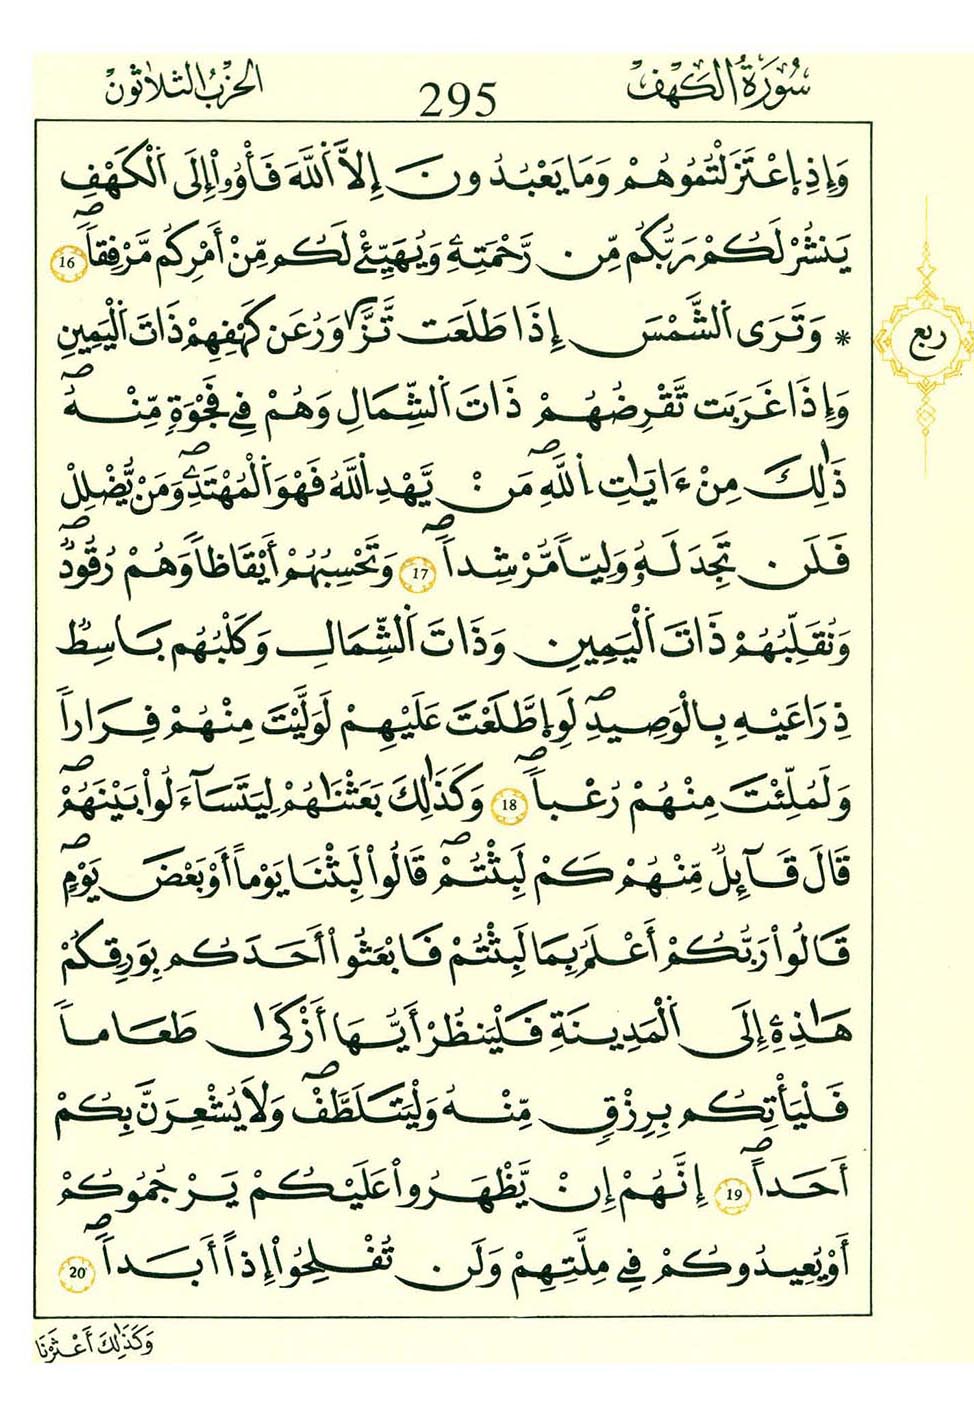 سُورَةُ الكَهْفِ 295 الحِزْبُ الثَّلاَثُونَ
وَإِذِ اِعْتَزَلْتُمُوهُمْ وَمَا يَعْبُدُونَ إِلاَّ اَللَّهَ فَأْوُۥٓاْ إِلَى اَلْكَهْفِ
يَنشُرْ لَكُمْ رَبُّكُم مِّن رَّحْمَتِهِۦ وَيُهَيِّئْ لَكُم مِّنْ أَمْرِكُم مَّرْفِقاًۖ 16
* وَتَرَى اَلشَّمْسَ إِذَا طَلَعَت تَّزَّٰوَرُ عَن كَهْفِهِمْ ذَاتَ اَلْيَمِينِ
وَإِذَا غَرَبَت تَّقْرِضُهُمْ ذَاتَ اَلشِّمَالِ وَهُمْ فِے فَجْوَةٍ مِّنْهُۖ
ذَٰلِكَ مِنْ ءَايَٰتِ اِللَّهِۖ مَنْ يَّهْدِ اِللَّهُ فَهْوَ اَلْمُهْتَدِۦۖ وَمَنْ يُّضْلِلْ
فَلَن تَجِدَ لَهُۥ وَلِيّاً مُّرْشِداًۖ 17 وَتَحْسِبُهُمُۥٓ أَيْقَاظاً وَهُمْ رُقُودٌۖ
وَنُقَلِّبُهُمْ ذَاتَ اَلْيَمِينِ وَذَاتَ اَلشِّمَالِ وَكَلْبُهُم بَاسِطٌ
ذِرَاعَيْهِ بِالْوَصِيدِۖ لَوِ اِطَّلَعْتَ عَلَيْهِمْ لَوَلَّيْتَ مِنْهُمْ فِرَاراً
وَلَمُلِّئْتَ مِنْهُمْ رُعْباًۖ 18 وَكَذَٰلِكَ بَعَثْنَٰهُمْ لِيَتَسَآءَلُواْ بَيْنَهُمْۖ
قَالَ قَآئِلٌ مِّنْهُمْ كَمْ لَبِثْتُمْۖ قَالُواْ لَبِثْنَا يَوْماً أَوْ بَعْضَ يَوْمٍۖ
قَالُواْ رَبُّكُمُۥٓ أَعْلَمُ بِمَا لَبِثْتُمْ فَابْعَثُوٓاْ أَحَدَكُم بِوَرِقِكُمْ
هَٰذِهِۦٓ إِلَى اَلْمَدِينَةِ فَلْيَنظُرْ أَيُّهَآ أَزْكَىٰ طَعَاماً
فَلْيَأْتِكُم بِرِزْقٍ مِّنْهُ وَلْيَتَلَطَّفْۖ وَلاَ يُشْعِرَنَّ بِكُمُۥٓ
أَحَداًۖ 19 إِنَّهُمُۥٓ إِنْ يَّظْهَرُواْ عَلَيْكُمْ يَرْجُمُوكُمُۥٓ
أَوْ يُعِيدُوكُمْ فِے مِلَّتِهِمْ وَلَن تُفْلِحُوٓاْ إِذاً أَبَداًۖ 20
ربع
وَكَذَٰلِكَ أَعْثَرْنَا